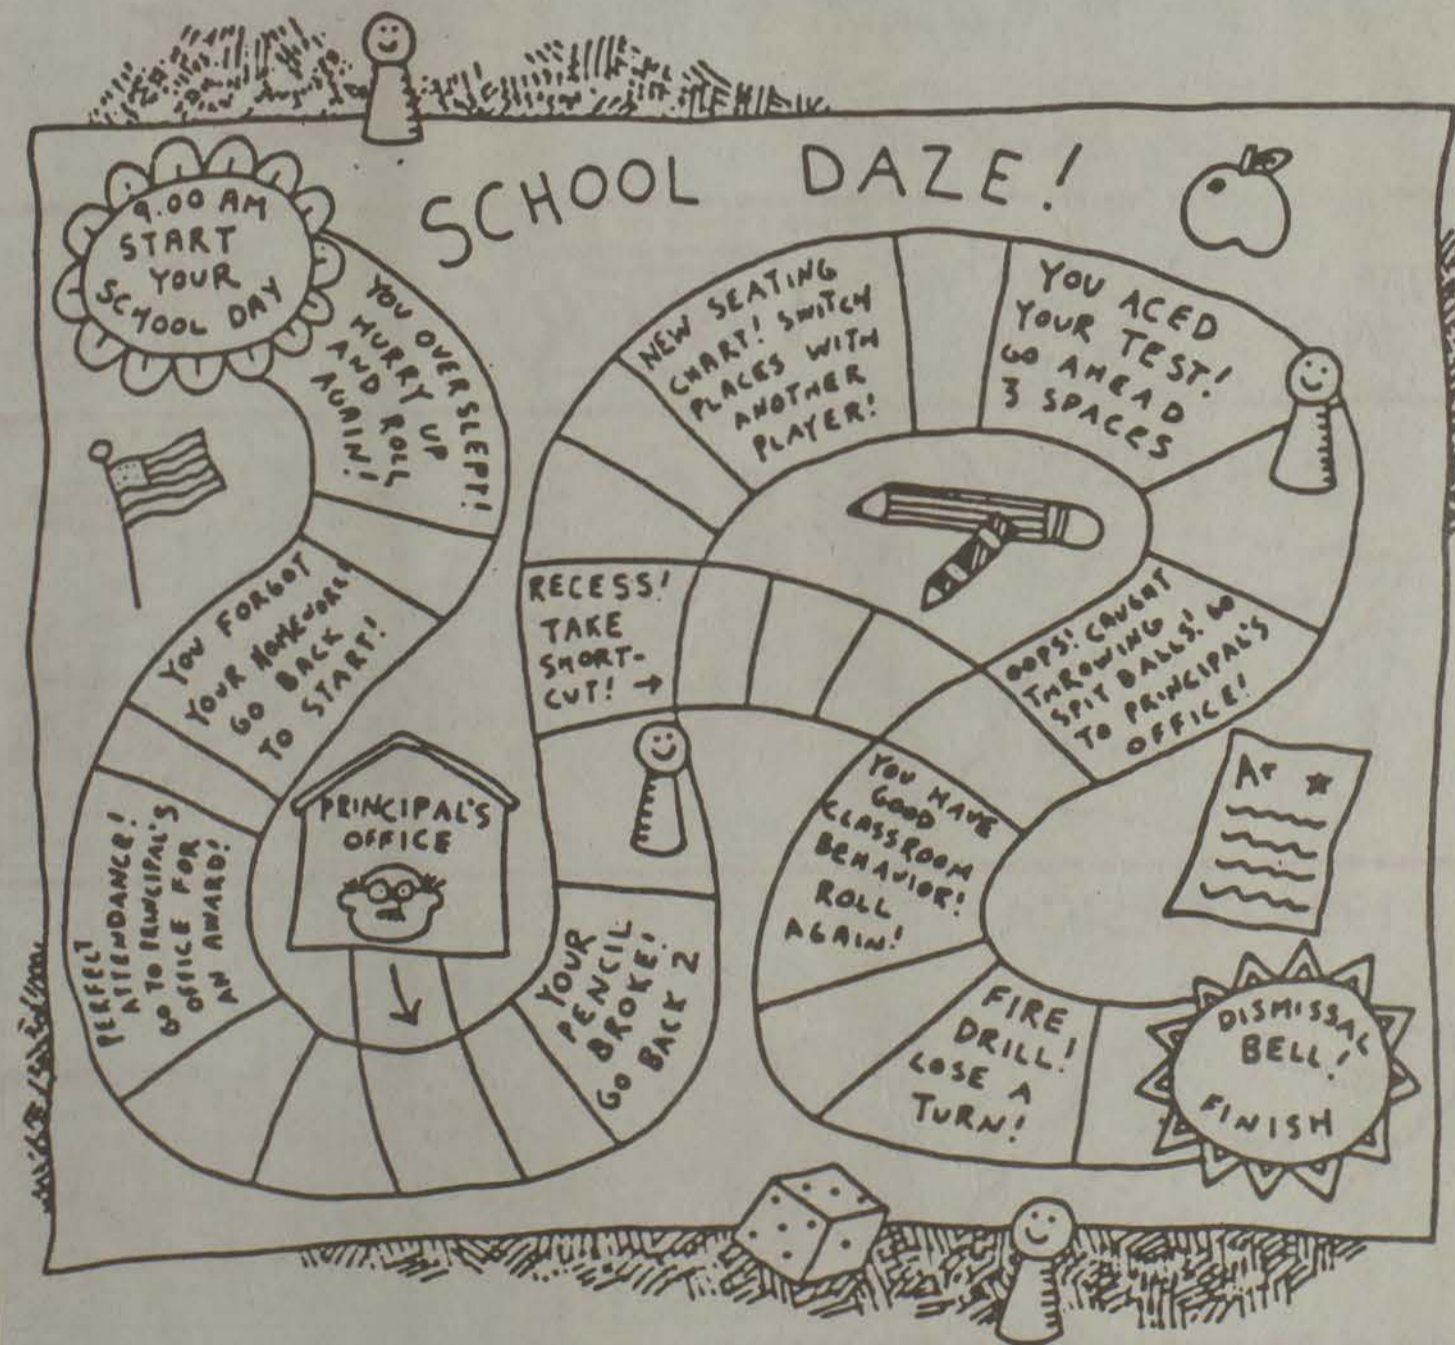 SCHOOL DAZE!
9.00 AM
START
YOUR
SCHOOL DAY
YOU OVERSLEPT!
HURRY UP
AND ROLL
AGAIN!
YOU FORGOT
YOUR HOMEWORK!
GO BACK
TO START!
PERFECT
ATTENDANCE!
GO TO PRINCIPAL'S
OFFICE FOR
AN AWARD!
PRINCIPAL'S
OFFICE
YOUR
PENCIL
BROKE!
GO BACK 2
RECESS!
TAKE
SHORT-
CUT! →
NEW SEATING
CHART! SWITCH
PLACES WITH
ANOTHER
PLAYER!
YOU ACED
YOUR TEST!
GO AHEAD
3 SPACES
OOPS! CAUGHT
THROWING
SPIT BALLS! GO
TO PRINCIPAL'S
OFFICE!
YOU HAVE
GOOD
CLASSROOM
BEHAVIOR!
ROLL
AGAIN!
A+
FIRE
DRILL!
LOSE A
TURN!
DISMISSAL
BELL!
FINISH